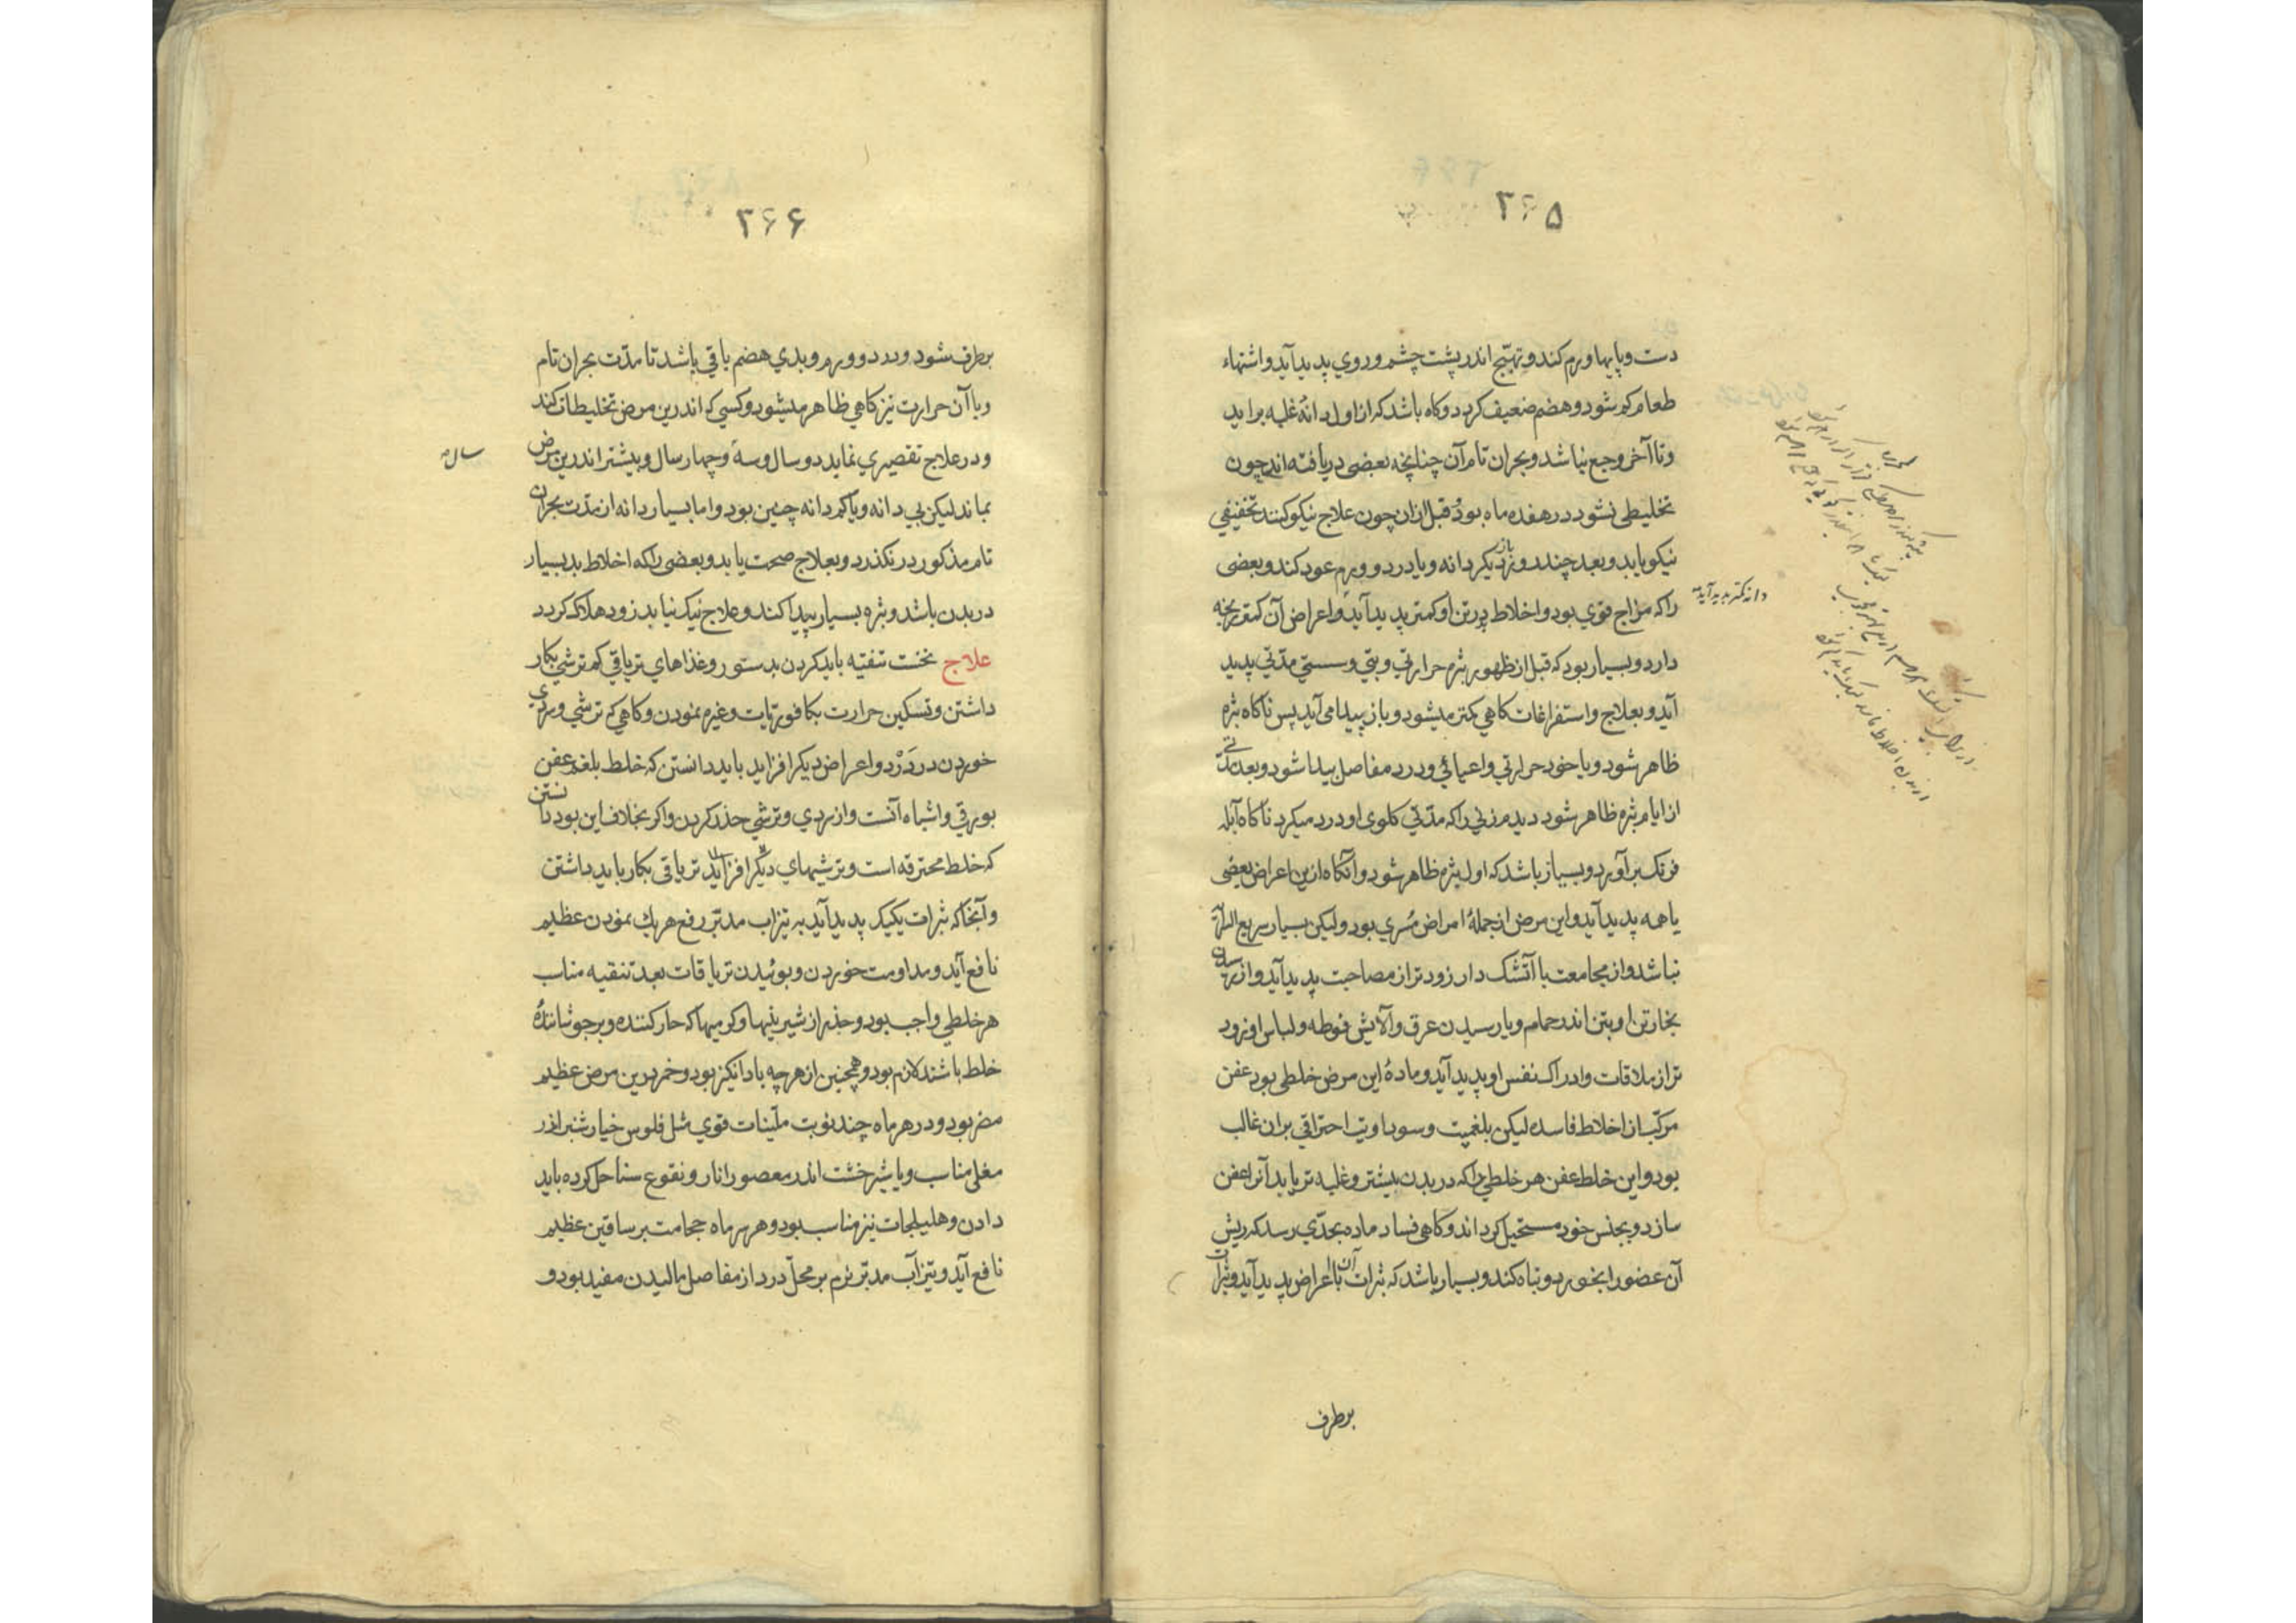 ۲۶۵
دست و پایها ورم کند و تهیّج اندر پشت چشم و روی پدید آید و اشتهاء
طعام کم شود و هضم ضعیف گردد و گاه باشد که از اول دانه غلبه براید
و تا آخر وجع نباشد و بحران تام آن چنانچه بعضی دریافته اند چون
تخلیطی نشود در هفده ماه بود و قبل ازان چون علاج نیکو کنند تخفیفی
نیکو یابد و بعد چند روز باز دیگر دانه و یا درد و ورم عود کند و بعضی
را که مزاج قوی بود و اخلاط بد در تن او کمتر پدید آید و اعراض آن کمتر رنجه
دانه کمتر پدید آید
دارد و بسیار بود که قبل از ظهور بثره حرارتی و تبی و سستی مدتی پدید
آید و بعلاج و استفراغات گاهی کمتر میشود و باز پیدا می آید پس ناگاه بثره
ظاهر شود و یا خود حرارتی و اعیائی و درد مفاصل پیدا شود و بعد مدتی
از ایام بثره ظاهر شود دیدم زنی را که مدتی گلوی او درد میکرد ناگاه آبله
فرنگ برآورد و بسیار باشد که اول بثره ظاهر شود و آنگاه ازین اعراض بعضی
یا همه پدید آید و این مرض از جملهٔ امراض مُسری بود ولیکن بسیار سریع السرایة
نباشد و از مجامعت با آتشک دار زودتر از مصاحبت پدید آید و از رسیدن
بخار تن او بتن اندر حمام و یا رسیدن عرق و آلایش فوطه و لباس او زود
تر از ملاقات و ادراک نفس او پدید آید و مادهٔ این مرض خلطی بود عفن
مرکّب از اخلاط فاسده لیکن بلغمیت و سوداویت احتراقی بران غالب
بود و این خلط عفن هر خلطی را که در بدن بیشتر و غلبه تر یابد آنرا عفن
سازد و بجنس خود مستحیل گرداند و گاهی فساد ماده بحدّی رسد که ریش
آن عضو را بخورد و تباه کند و بسیار باشد که بثرات آن با اعراض پدید آید و بثرات
برطرف
۲۶۶
برطرف شود و درد و ورم و بدی هضم باقی باشد تا مدّت بحران تام
و با آن حرارت نیز گاهی ظاهر میشود و کسی که اندرین مرض تخلیطات کند
و در علاج تقصیری نماید دو سال و سه و چهار سال و بیشتر اندرین مرض
سال
بماند لیکن بی دانه و یا کم دانه چنین بود و اما بسیار دانه از مدّت بحران
تام مذکور در نگذرد و بعلاج صحت یابد و بعضی را که اخلاط بد بسیار
در بدن باشد و بثره بسیار پیدا کند و علاج نیک نیابد زود هلاک گردد
علاج نخست تنقیه باید کردن بدستور و غذاهای تریاقی کم ترشی بکار
داشتن و تسکین حرارت بکافوریات و غیره نمودن و گاهی که ترشی و سردی
خوردن درد دَرد و اعراض دیگر افزاید باید دانستن که خلط بلغم عفن
بورقی و اشباه آنست و از سردی و ترشی حذر کردن و اگر بخلاف این بود دانستن
که خلط محترقه است و ترشیهای دیگر افزاید تریاقی بکار باید داشتن
و آنجا که بثرات یکیک پدید آید به تیزاب مدبّر رفع هر یک نمودن عظیم
نافع آید و مداومت خوردن و بوئیدن تریاقات بعد تنقیه مناسب
هر خلطی واجب بود و حذر از شیرینیها و گرمیها که حار کننده و برجوشانندهٔ
خلط باشند لازم بود و همچنین از هر چه بادانگیز بود و خمر درین مرض عظیم
مضر بود و در هر ماه چند نوبت ملیّنات قوی مثل فلوس خیارشنبر اندر
مغلی مناسب و یا شیرخشت اندر معصور انار و نقوع سنا حل کرده باید
دادن و هلیلجات نیز مناسب بود و هر سر ماه حجامت بر ساقین عظیم
نافع آید و تیزاب مدبّر نرم بر محلّ درد از مفاصل مالیدن مفید بود و